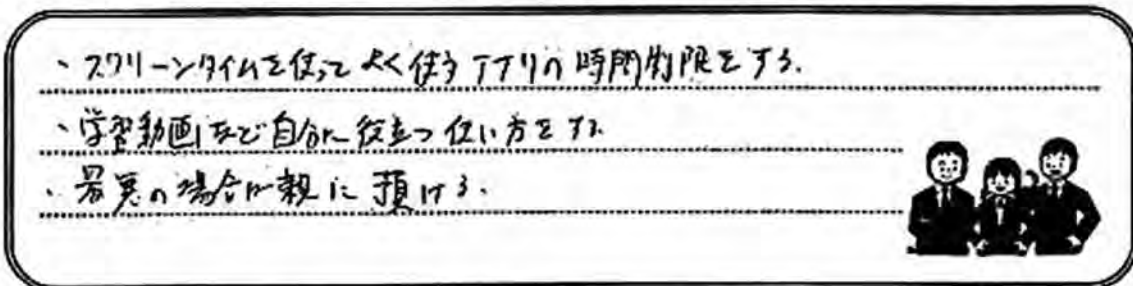 ・スクリーンタイムを使ってよく使うアプリの時間制限をする.
・学習動画など自分に役立つ使い方をする
・最悪の場合は親に預ける.